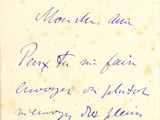 Mon cher Ami
Peux tu me faire
envoyer ou plutôt
m'envoyer des pleins